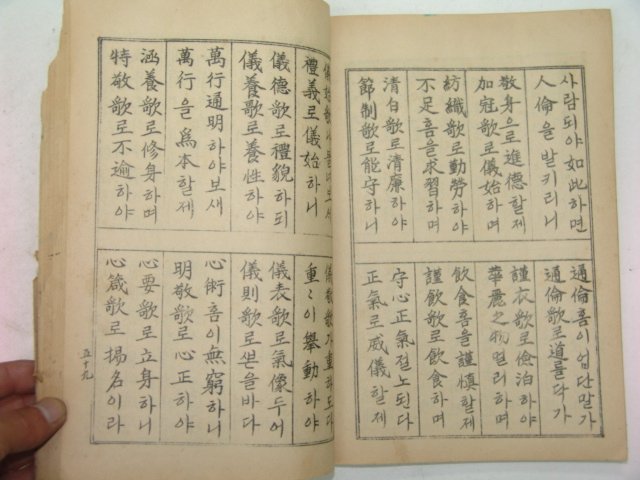 사람되야如此하면
人倫을발키리니
敬身으로進德할제
加冠歌로儀始하며
紡織歌로勤勞하야
不足흠을求習하며
清白歌로清廉하야
節制歌로能守하니
通倫흠이업단말가
通倫歌로道를닥가
謹衣歌로儉泊하야
華麗之物멀리하며
飲食흠을謹慎할제
謹飲歌로飲食하며
守心正氣절노된다
正氣로威儀할제
禮義로儀始하니
儀德歌로禮貌하되
儀養歌로養性하야
萬行通明하야보새
萬行을爲本할제
涵養歌로修身하며
特敬歌로不逾하야
重〻이擧動하야
儀表歌로氣像두어
儀則歌로쏜을바다
心術흠이無窮하니
明敬歌로心正하야
心要歌로立身하니
心箴歌로揚名이라
五十九